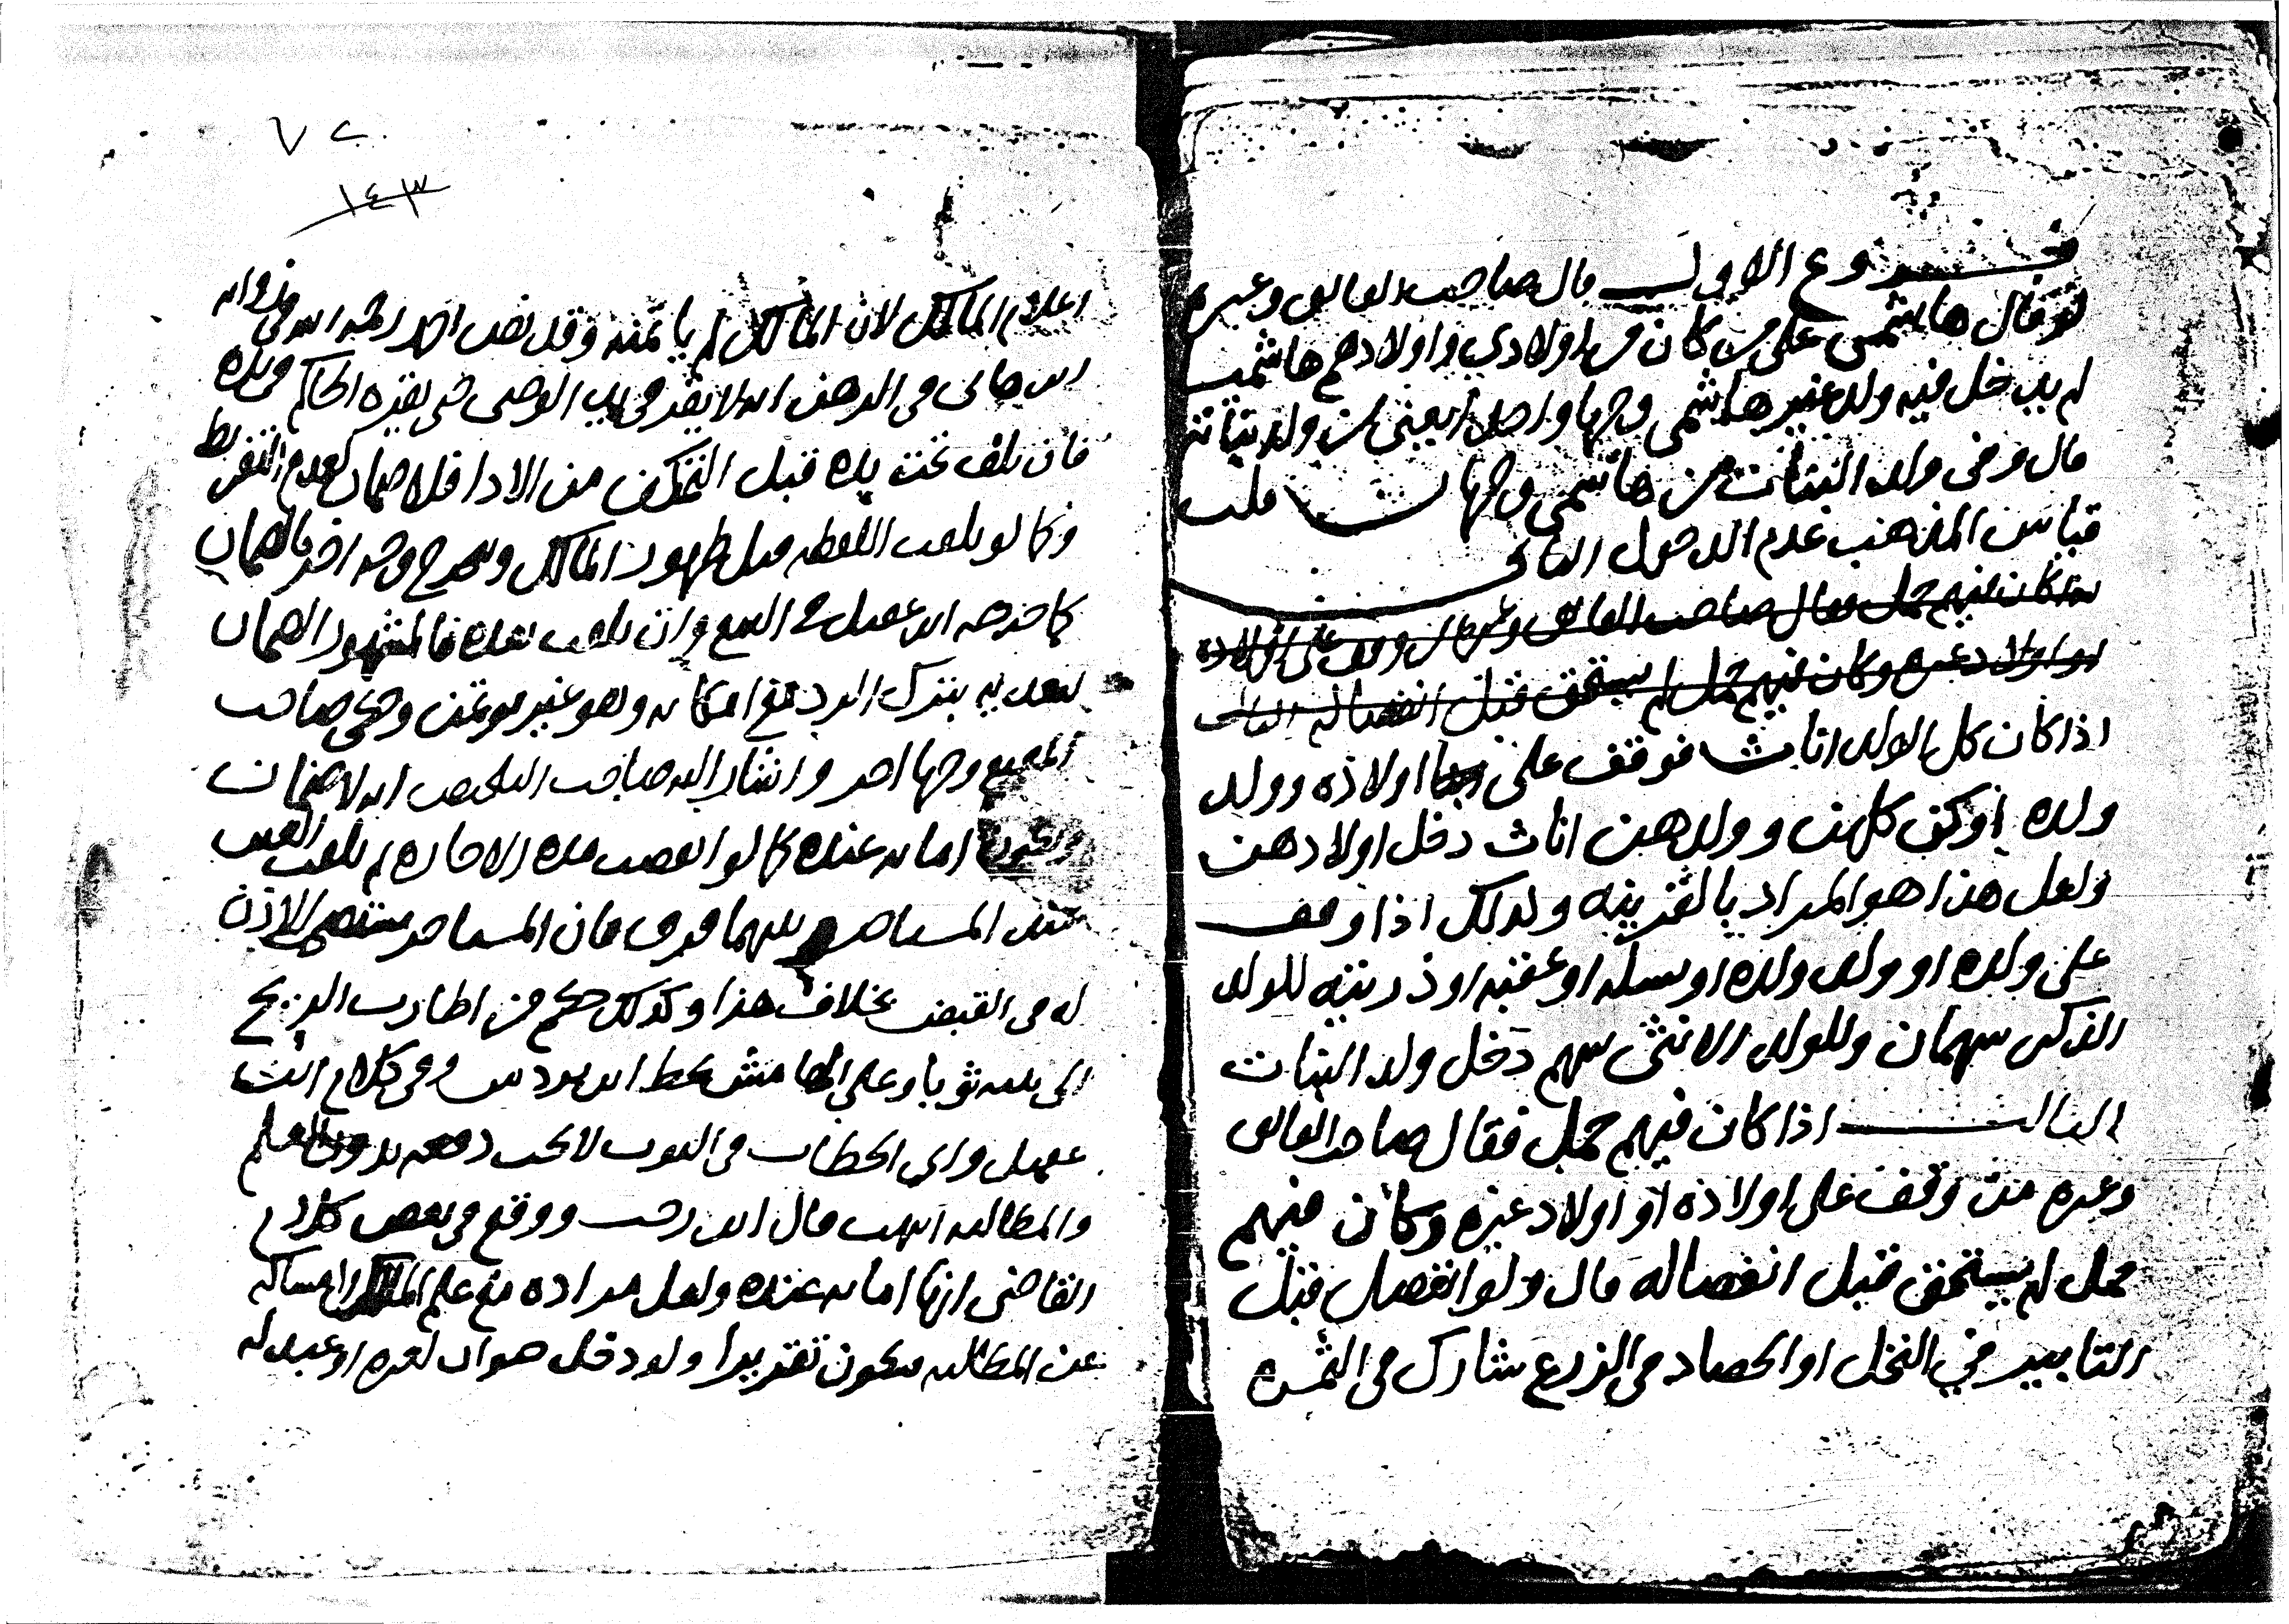 فروع الاول قال صاحب الفائق وغيره
لو قال هاشمي على من كان من اولادي واولادهم هاشميا
لم يدخل فيه ولد غير هاشمي وجها واحدا يعني من ولد بناته
قال وفي ولد البنات من هاشمي وجهان قلت
قياس المذهب عدم الدخول الثاني
كان فيهم حمل فقال صاحب الفائق وغيره من وقف على اولاده
او اولاد غيره وكان فيهم حمل لم يستحق قبل انفصاله الثاني
اذا كان كل الولد اناث فوقف على اولاده وولد
ولده او كن كلهن وولدهن اناث دخل اولادهن
ولعل هذا هو المراد بالقرينه وكذلك اذا وقف
على ولده او ولد ولده او نسله او عقبه او ذريته للولد
الذكر سهمان وللولد الانثى سهم دخل ولد البنات
الثالث اذا كان فيهم حمل فقال صاحب الفائق
وغيره من وقف على اولاده او اولاد غيره وكان فيهم
حمل لم يستحق قبل انفصاله قال ولو انفصل قبل
التابير في النخل او الحصاد في الزرع شارك في الثمره
٧٢
١٤٣
اعلام المالك لان المالك لم ياتمنه وقد نص احمد رحمه الله في روايه
ابن هاني في الرهن انه لا يقر في يد الوصي حتى يقره الحاكم في يده
فان تلف تحت يده قبل التمكن من الادا فلا ضمان لعدم التفريط
وكما لو تلفت اللقطه قبل ظهور المالك ويخرج وجه اخر بالضمان
كما خرجه ابن عقيل في البيع وان تلفت بعده فالمشهور الضمان
لتعديه بترك الرد مع امكانه وهو غير موتمن وحكى صاحب
وجها اخر واشار اليه صاحب التلخيص انه لا ضمان
امانه عنده كما لو انقضت مده الاجاره ثم تلفت العين
عند المستاجر بينهما فرق فان المستاجر الاذن
له في القبض بخلاف هذا وكذلك حكم من اطارت الريح
الى بيته ثوبا وعلى الهامش بخط ابن وفي كلام ابن
عقيل وابي الخطاب في الثوب لا يجب دفعه بدون العلم
والمطالبه انتهت قال ابن رجب ووقع في بعض كلام
القاضي انها امانه عنده ولعل مراده مع علم المالك وامساكه
عن المطالبه فيكون تقريرا ولو دخل حيوان لغيره او عبد له